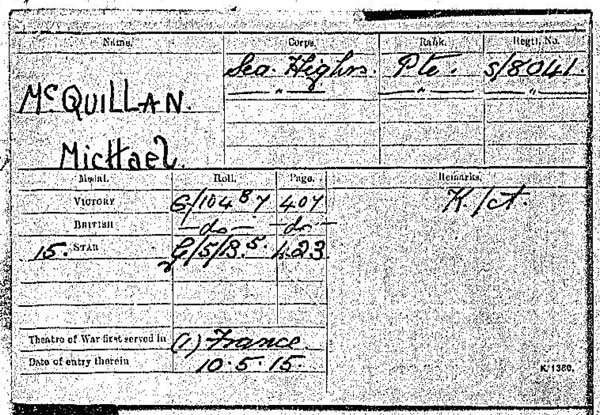 Name. Corps. Rank. Regtl. No.
McQUILLAN. Sea. Highrs. Pte. S/8041.
" " "
Michael.
Medal. Roll. Page. Remarks.
VICTORY G/104 B 7 407 K./ct.
BRITISH —do— —do—
15. STAR G/5/B.5. 423
Theatre of War first served in (1) France
Date of entry therein 10.5.15.
K 1380.